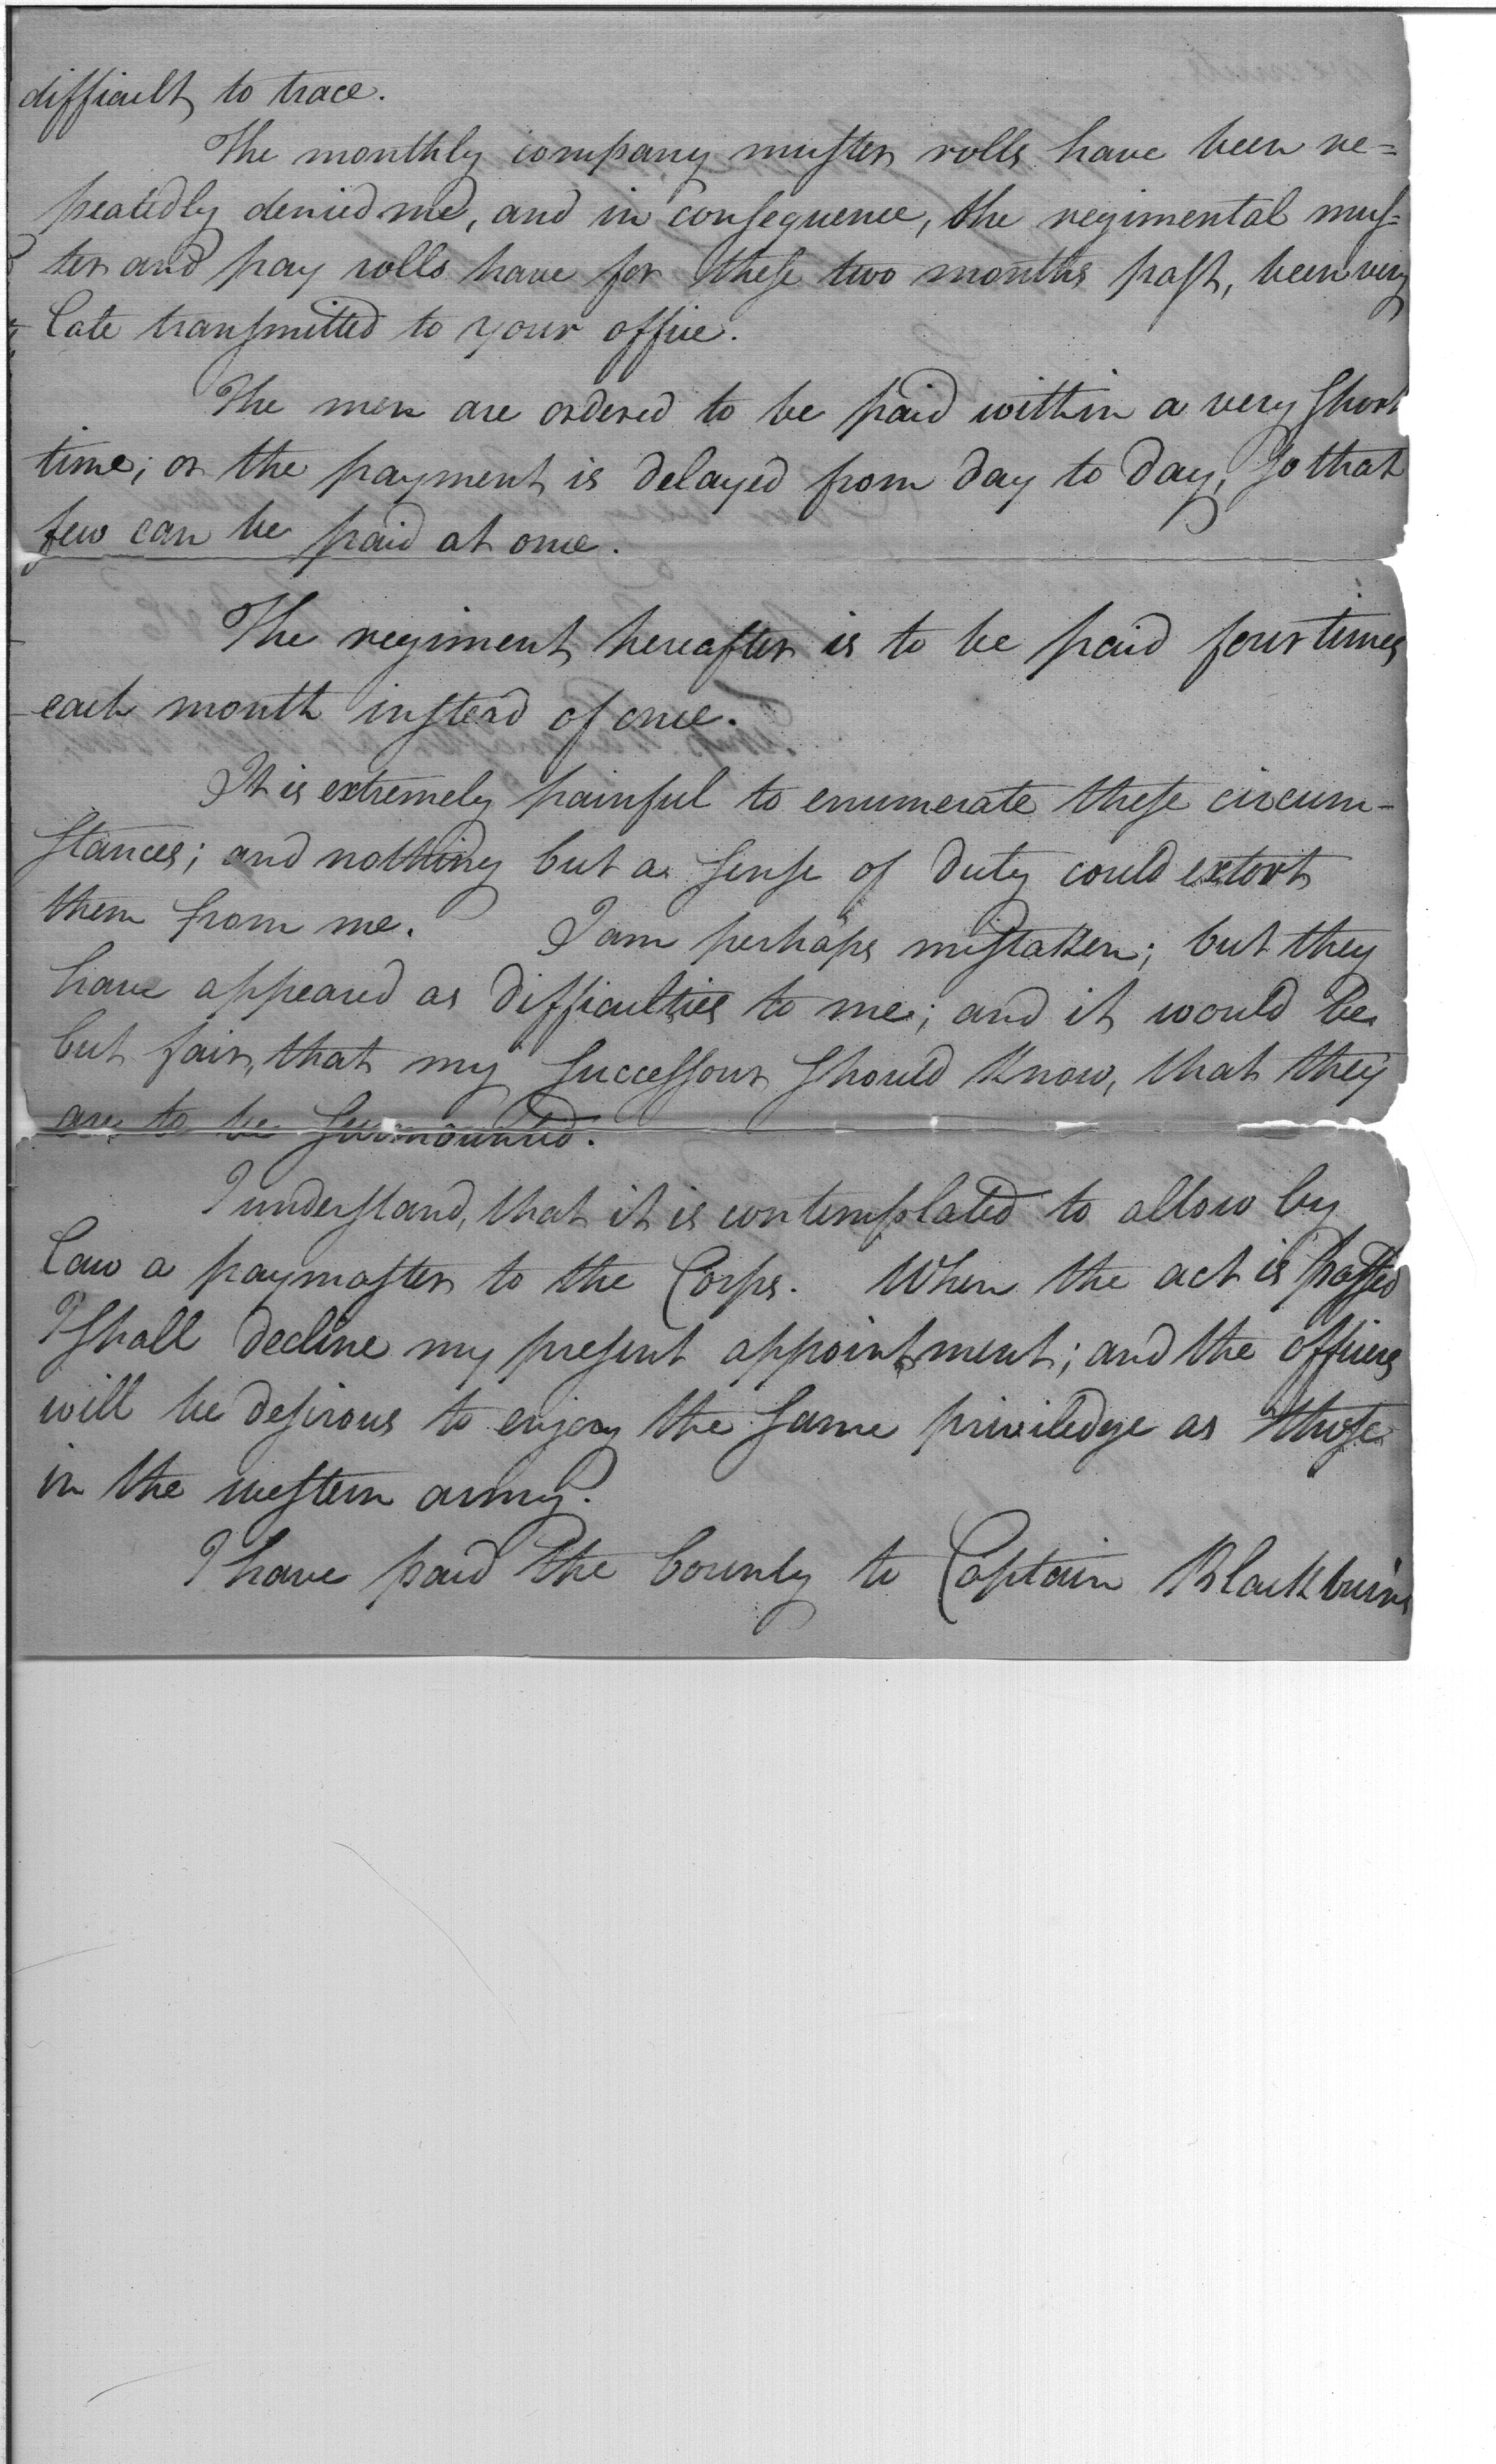 difficult to trace.
The monthly company muster rolls have been re=
peatedly denied me, and in consequence, the regimental mus=
ter and pay rolls have for these two months past, been very
late transmitted to your office.
The men are ordered to be paid within a very short
time; or the payment is delayed from day to day, so that
few can be paid at once.
The regiment hereafter is to be paid four times
each month instead of once.
It is extremely painful to enumerate these circum-
stances; and nothing but a sense of duty could extort
them from me. I am perhaps mistaken; but they
have appeared as difficulties to me; and it would be
but fair, that my successour should know, that they
are to be surmounted.
I understand, that it is contemplated to allow by
law a paymaster to the Corps. When the act is passed
I shall decline my present appointment; and the officers
will be desirous to enjoy the same priviledge as those
in the western army.
I have paid the bounty to Captain Blackburn